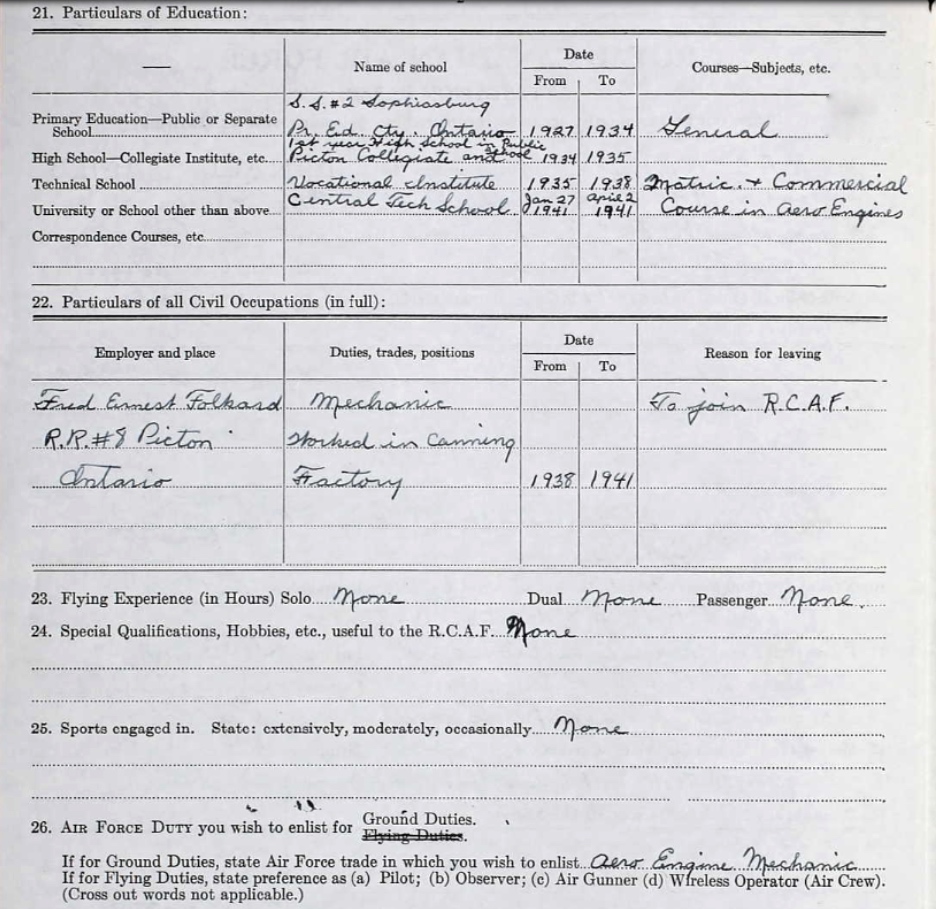 21. Particulars of Education:
Date
— Name of school Courses—Subjects, etc.
From To
S.S.#2 Sophiasburg
Primary Education—Public or Separate
School Pr. Ed. Cty. Ontario 1927 1934 General
1st year High School in Public
School
High School—Collegiate Institute, etc. Picton Collegiate and 1934 1935
Technical School Vocational Institute 1935 1938 Matric. + Commercial
Central Tech School Jan 27 April 2
University or School other than above 1941 1941 Course in Aero Engines
Correspondence Courses, etc
22. Particulars of all Civil Occupations (in full):
Date
Employer and place Duties, trades, positions Reason for leaving
From To
Fred Ernest Folkard Mechanic To join R.C.A.F.
R.R.#8 Picton Worked in Canning
Ontario Factory 1938 1941
23. Flying Experience (in Hours) Solo None Dual None Passenger None.
24. Special Qualifications, Hobbies, etc., useful to the R.C.A.F. None
25. Sports engaged in. State: extensively, moderately, occasionally None
26. AIR FORCE DUTY you wish to enlist for Ground Duties.
Flying Duties.
If for Ground Duties, state Air Force trade in which you wish to enlist Aero Engine Mechanic
If for Flying Duties, state preference as (a) Pilot; (b) Observer; (c) Air Gunner (d) Wireless Operator (Air Crew).
(Cross out words not applicable.)